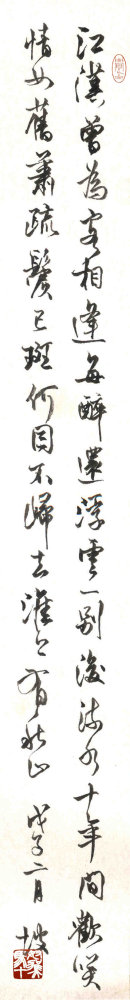 江漢曾為客相逢每醉還浮雲一別後流水十年間歡笑
情如舊蕭疏鬢已斑何因不歸去淮上有秋山 戊子二月 坡